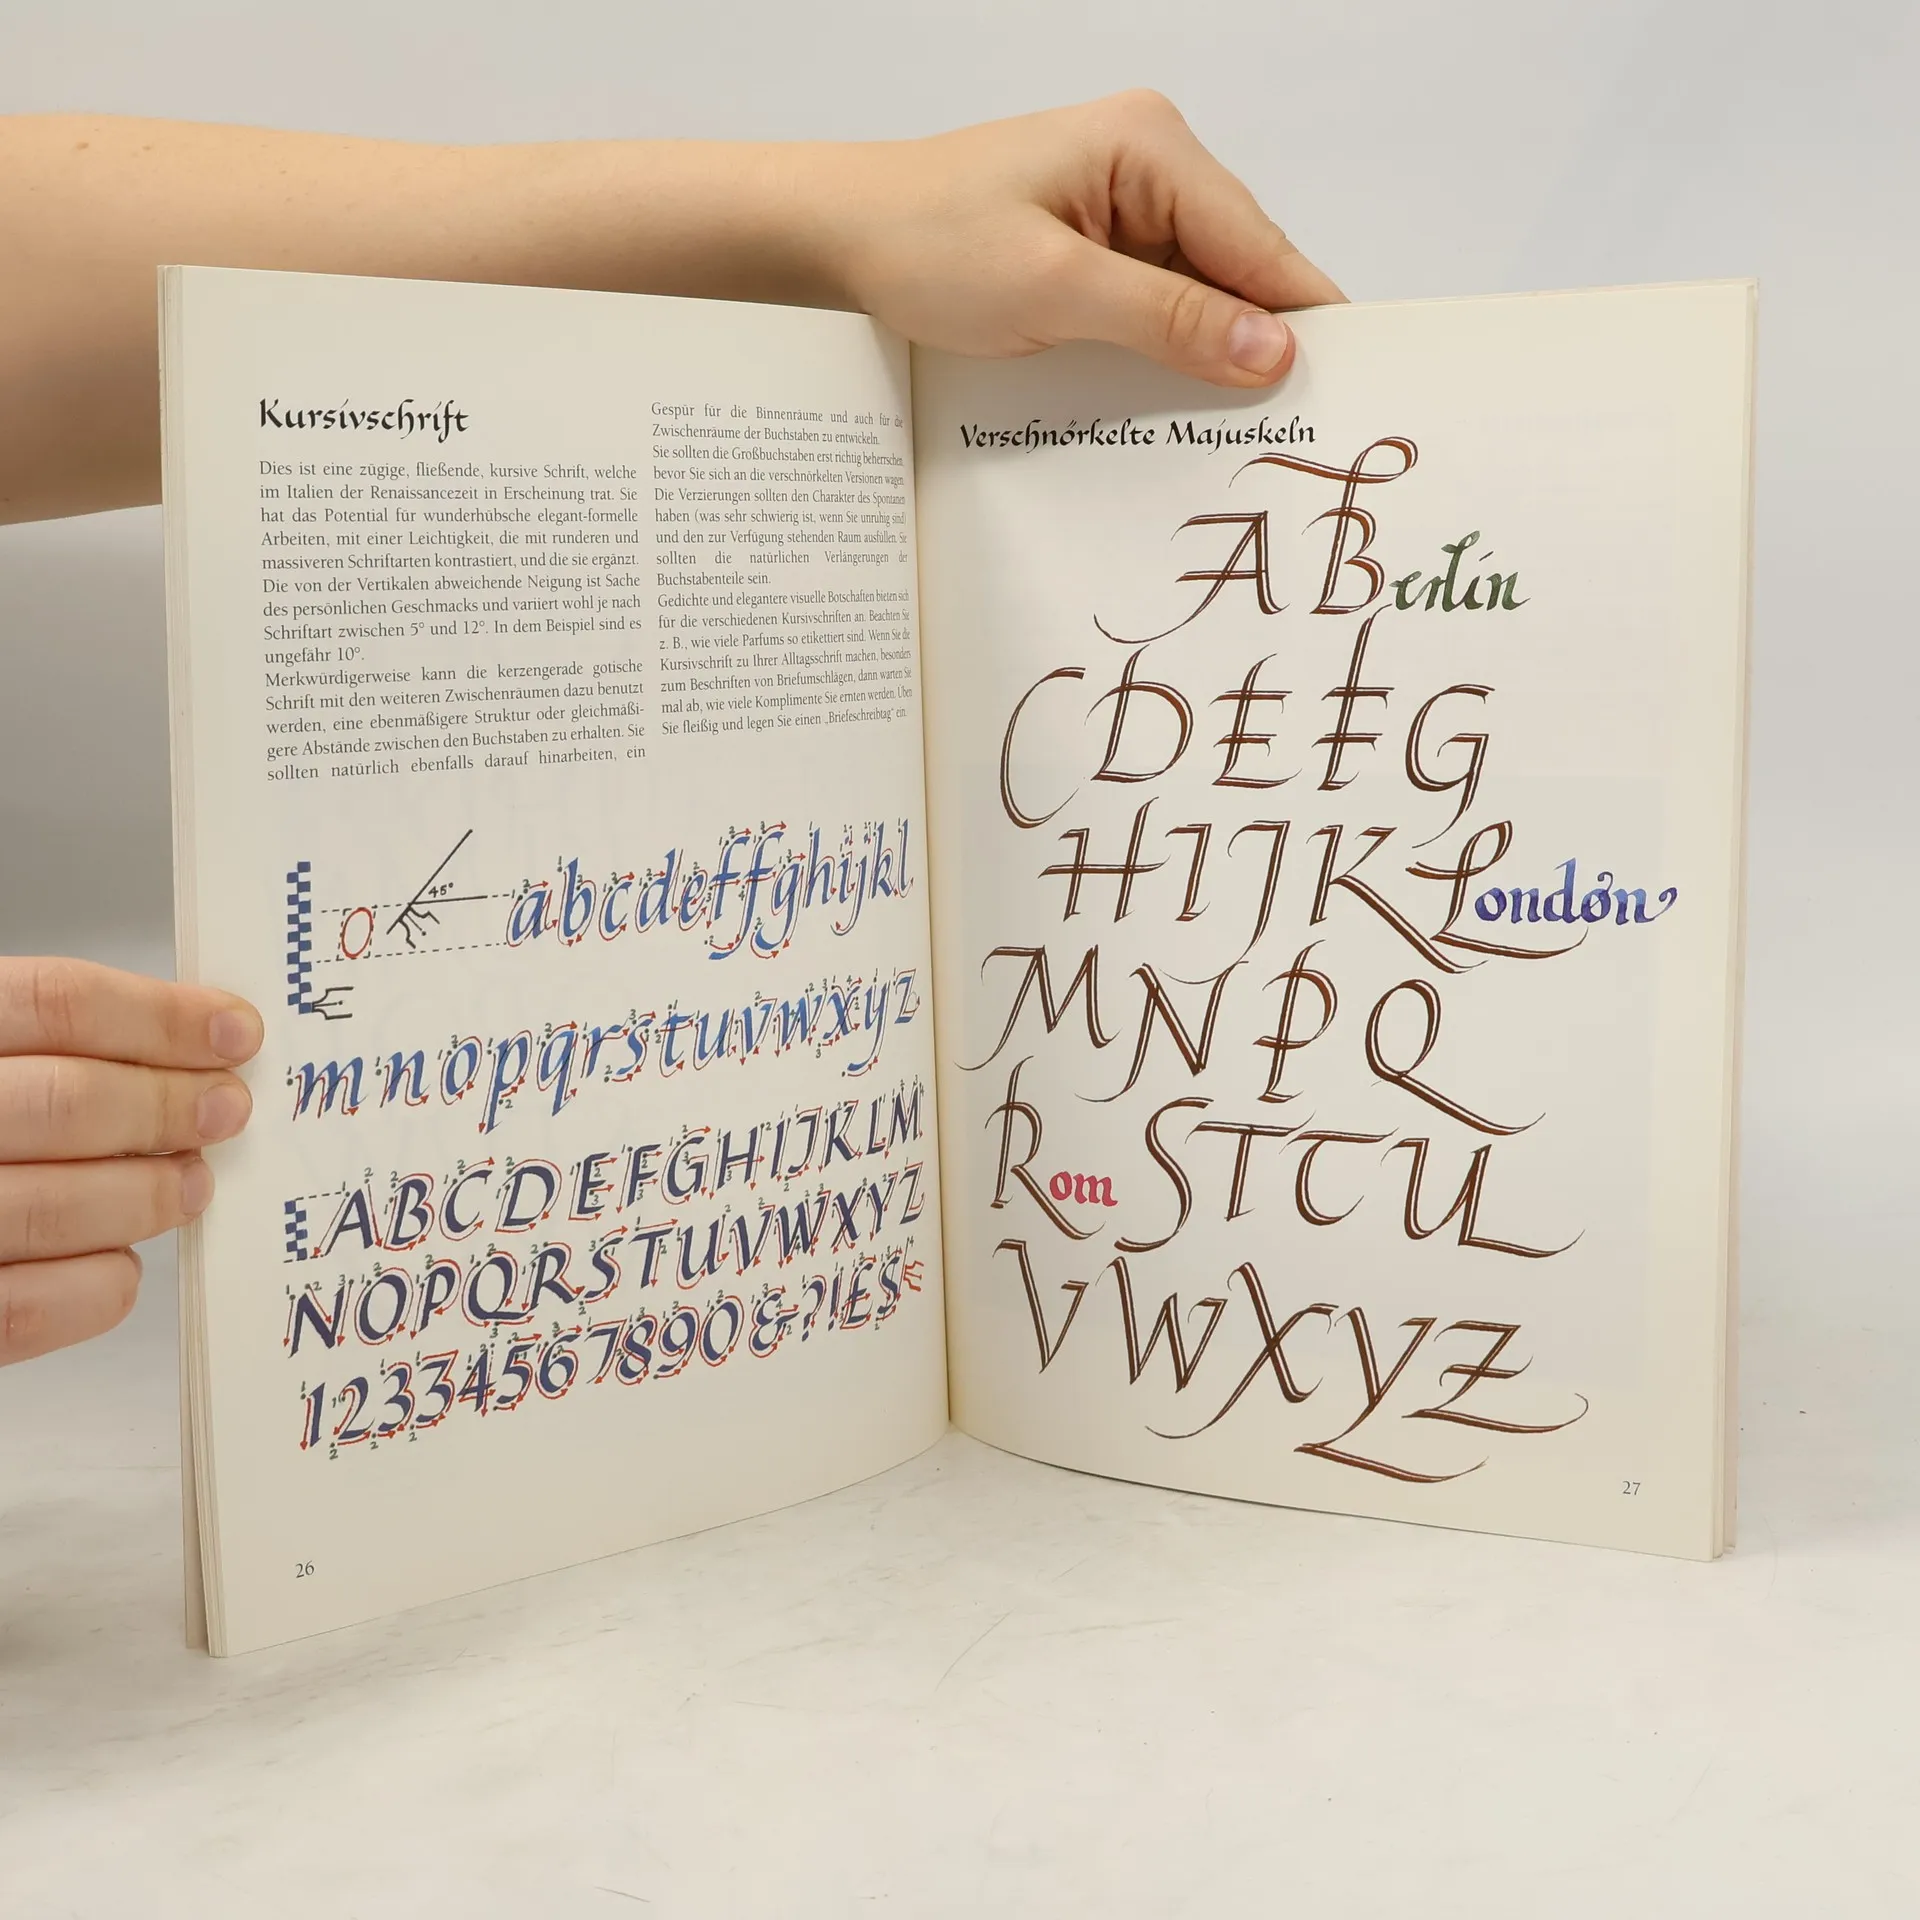 Kursivschrift
Dies ist eine zügige, fließende, kursive Schrift, welche
im Italien der Renaissancezeit in Erscheinung trat. Sie
hat das Potential für wunderhübsche elegant-formelle
Arbeiten, mit einer Leichtigkeit, die mit runderen und
massiveren Schriftarten kontrastiert, und die sie ergänzt.
Die von der Vertikalen abweichende Neigung ist Sache
des persönlichen Geschmacks und variiert wohl je nach
Schriftart zwischen 5° und 12°. In dem Beispiel sind es
ungefähr 10°.
Merkwürdigerweise kann die kerzengerade gotische
Schrift mit den weiteren Zwischenräumen dazu benutzt
werden, eine ebenmäßigere Struktur oder gleichmäßi-
gere Abstände zwischen den Buchstaben zu erhalten. Sie
sollten natürlich ebenfalls darauf hinarbeiten, ein
Gespür für die Binnenräume und auch für die
Zwischenräume der Buchstaben zu entwickeln.
Sie sollten die Großbuchstaben erst richtig beherrschen,
bevor Sie sich an die verschnörkelten Versionen wagen.
Die Verzierungen sollten den Charakter des Spontanen
haben (was sehr schwierig ist, wenn Sie unruhig sind)
und den zur Verfügung stehenden Raum ausfüllen. Sie
sollten die natürlichen Verlängerungen der
Buchstabenteile sein.
Gedichte und elegantere visuelle Botschaften bieten sich
für die verschiedenen Kursivschriften an. Beachten Sie
z. B., wie viele Parfums so etikettiert sind. Wenn Sie die
Kursivschrift zu Ihrer Alltagsschrift machen, besonders
zum Beschriften von Briefumschlägen, dann warten Sie
mal ab, wie viele Komplimente Sie ernten werden. Üben
Sie fleißig und legen Sie einen „Briefeschreibtag" ein.
45°
abcdeffghijkl
mnopqrstuvwxyz
ABCDEFGHIJKLM
NOPQRSTUVWXYZ
12334567890&?!ES
26
Verschnörkelte Majuskeln
A Berlin
CDEFG
HIJK London
MNPQ
Rom STTU
VWXYZ
27